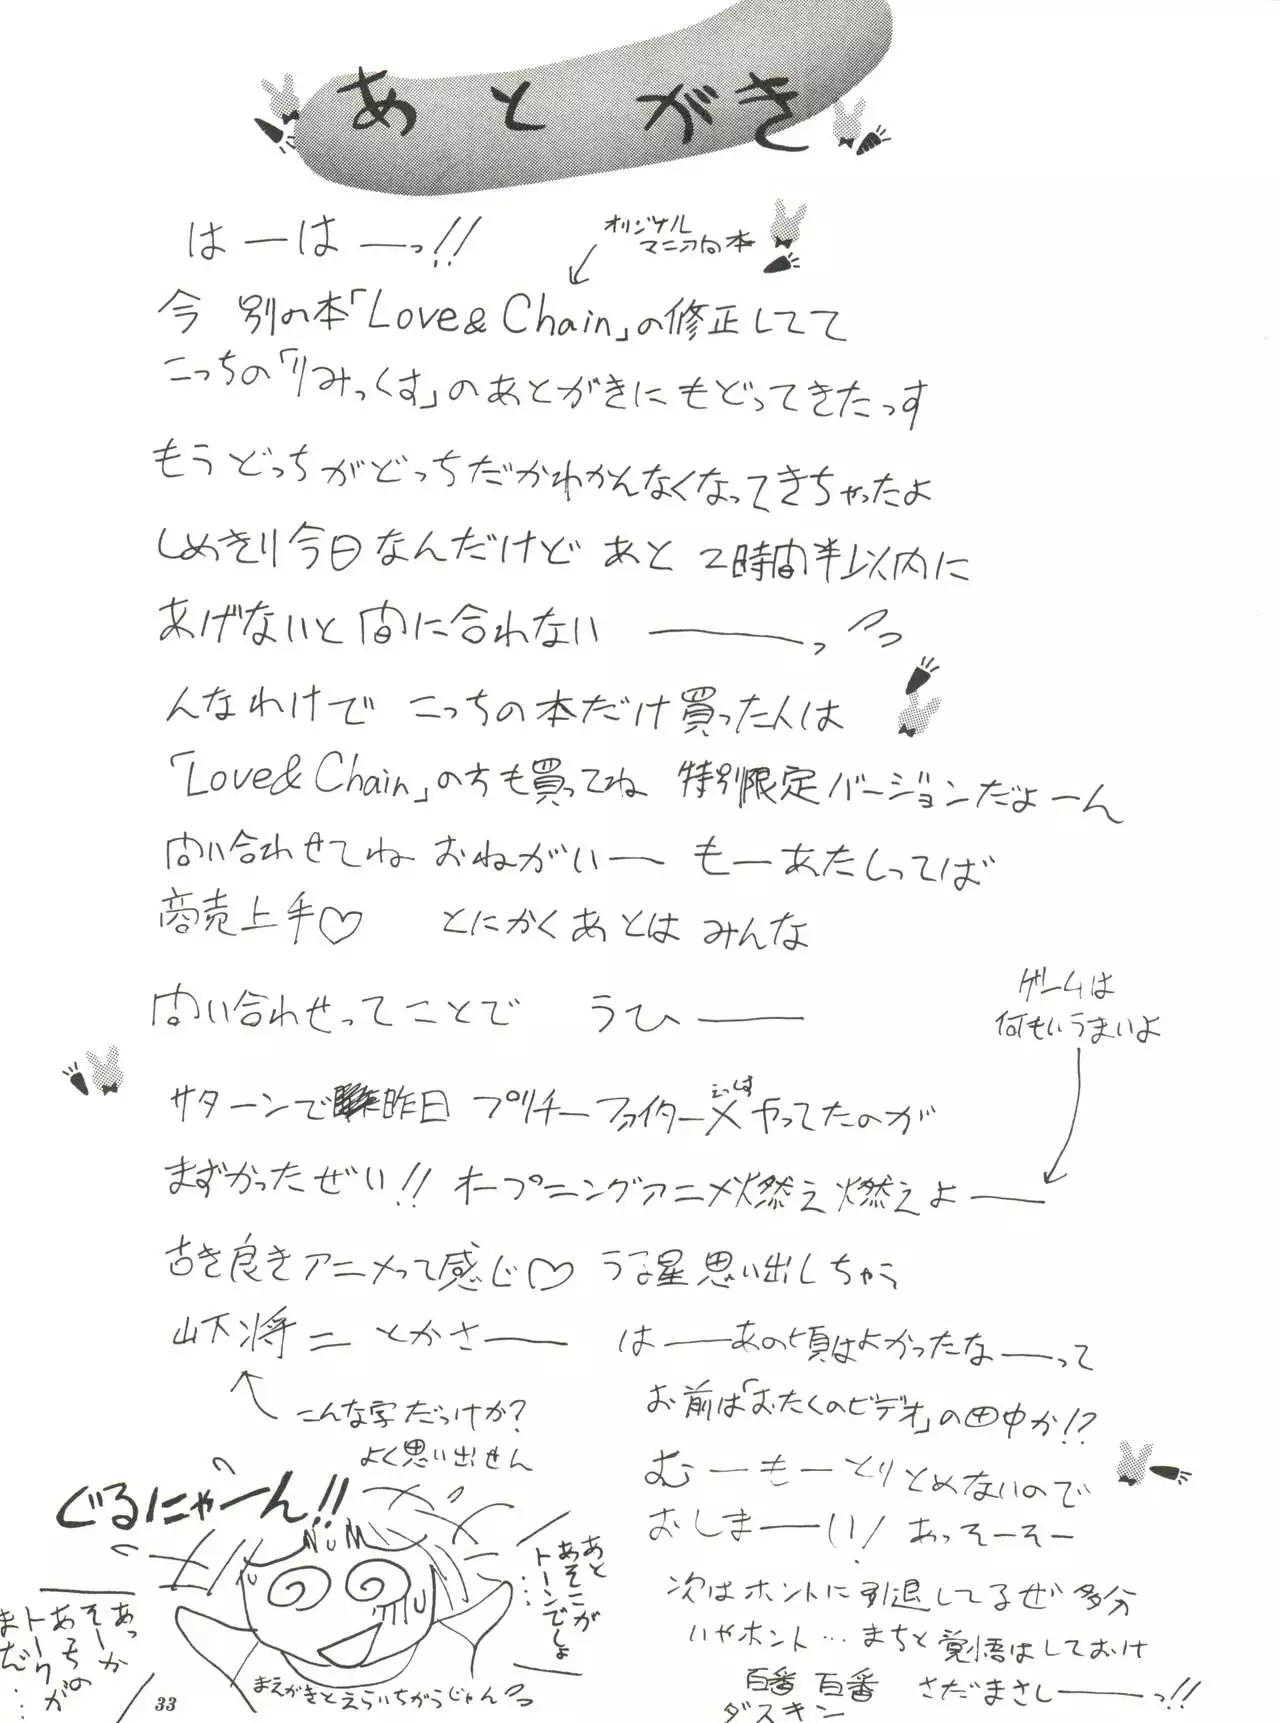 あとがき
はーはーっ!!
オリジナル
マニア向本
今 別の本「Love & Chain」の修正してて
こっちの「りみっくす」のあとがきにもどってきたっす
もうどっちがどっちだかわかんなくなってきちゃったよ
しめきり今日なんだけど あと2時間半以内に
あげないと間に合わない ーーーっ
んなわけで こっちの本だけ買った人は
「Love & Chain」の方も買ってね 特別限定バージョンだよーん
問い合わせてね おねがいー もーあたしってば
商売上手♡ とにかくあとは みんな
問い合わせってことで うひー
ゲームは
何もいうまいよ
サターンで昨日 プリチーファイターX やってたのが
えっす
まずかったぜい!! オープニングアニメ燃え燃えよー
古き良きアニメって感じ♡ うる星思い出しちゃう
山下将ニ とかさー はーあの頃はよかったなーって
こんな字だっけか?
よく思い出せん
お前は「おたくのビデオ」の田中か!?
むーもーとりとめないので
おしまーい! あっそーそー
次はホントに引退してるぜ 多分
いやホント…まちと覚悟はしておけ
百番 百番 さだまさしーっ!!
ダスキン
ぐるにゃーん!!
あと
あそこが
トーンでしょ
……
あっか
そーか
あっちの
トークが
まだ……
まえがきとえらいちがうじゃん
33